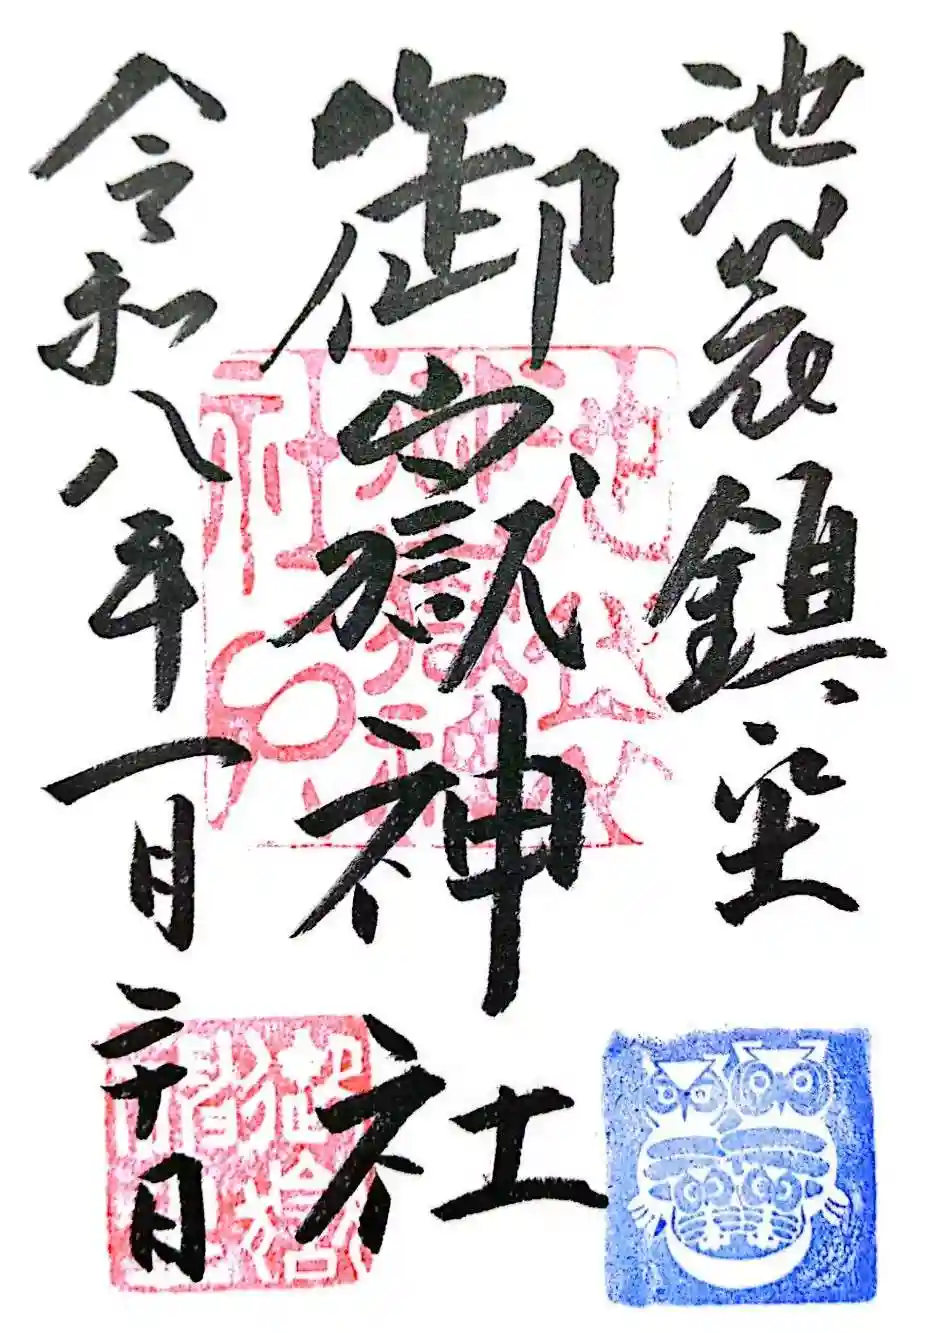 池袋鎮座
御嶽神社
令和八年一月二十日